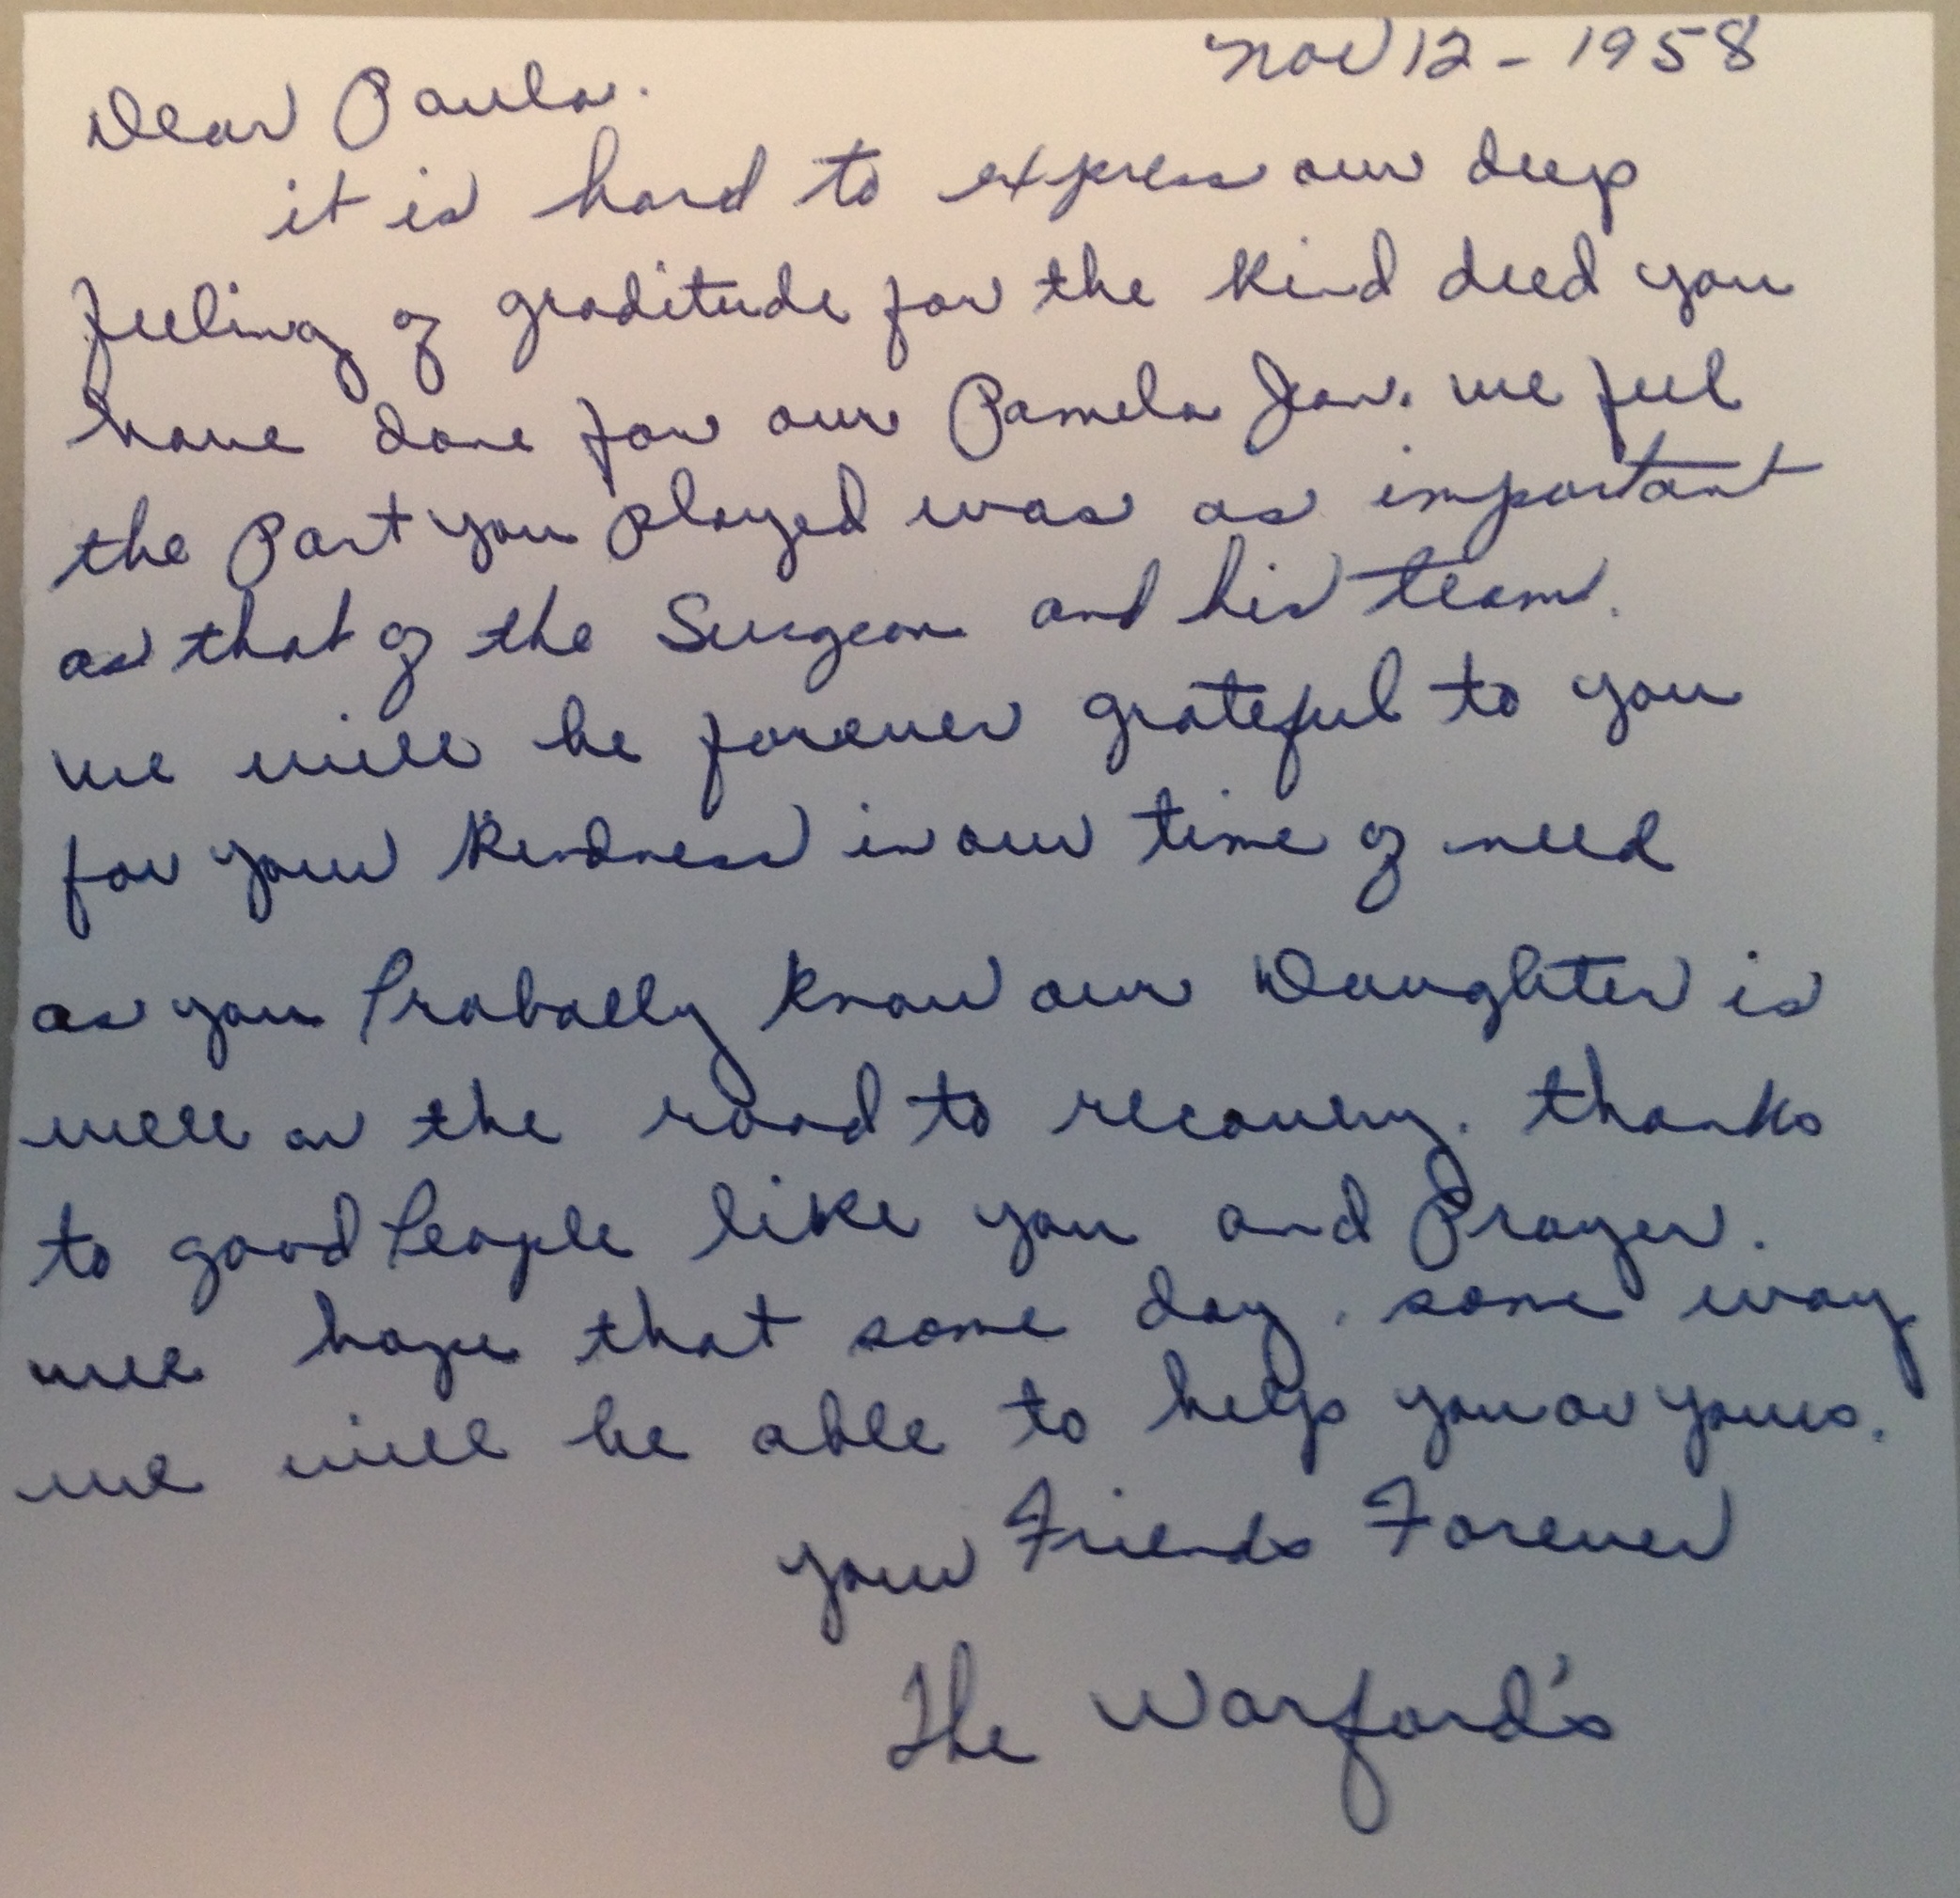 Nov 12 - 1958
Dear Paula.
it is hard to express our deep
feeling of graditude for the kind deed you
have done for our Pamela Jean. we feel
the Part you played was as important
as that of the Surgeon and his team.
we will be forever grateful to you
for your kindness in our time of need
as you Probally know our Daughter is
well on the road to recovery. thanks
to good People like you and Prayer.
wee hope that some day. some way
we will be able to help you or yours.
your Friends Forever
The Warford's